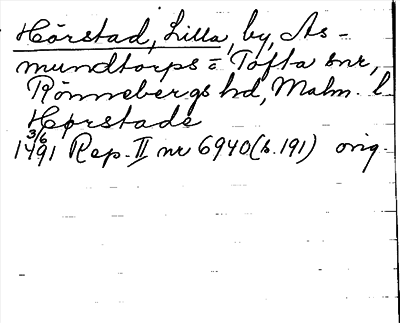 Hörstad, Lilla, by, As-
mundtorps = Tofta snr,
Rönnebergs hd, Malm. l
Hørstade
3/6
1491 Rep. II nr 6940 (b. 191) orig.